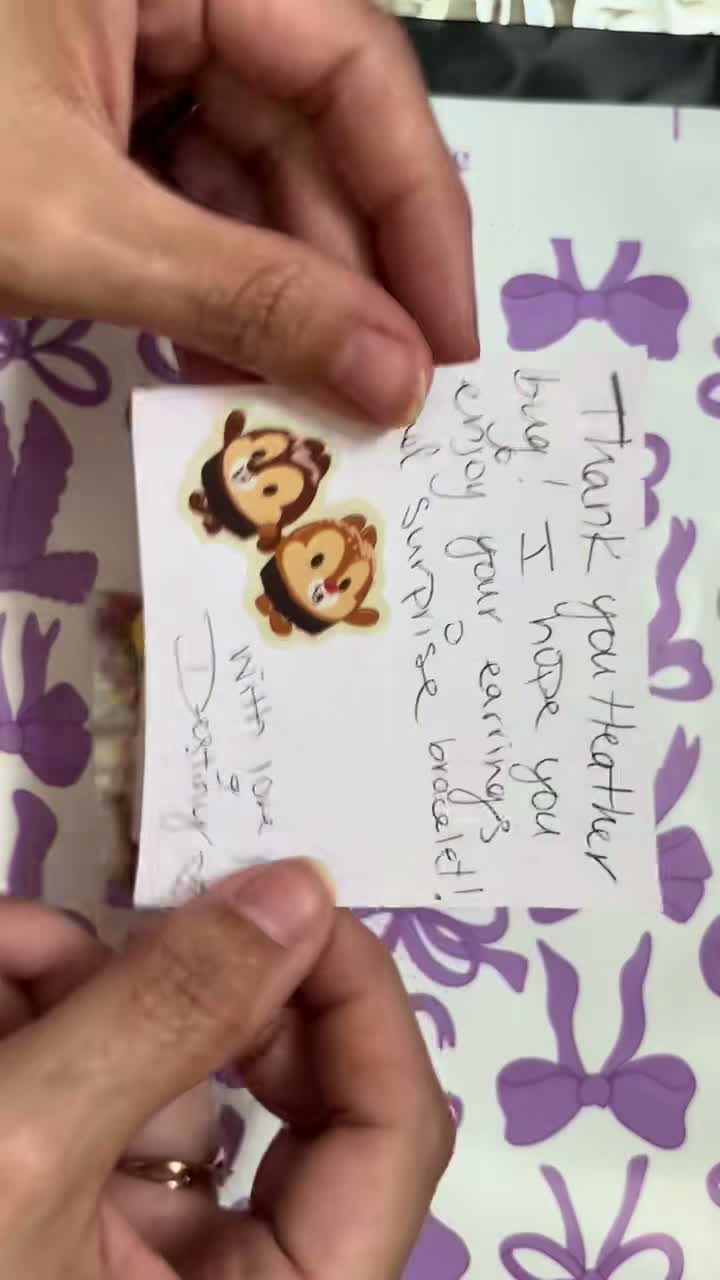 Thank you Heather
bug! I hope you
enjoy your earrings
surprise bracelet!
With love
Destiny